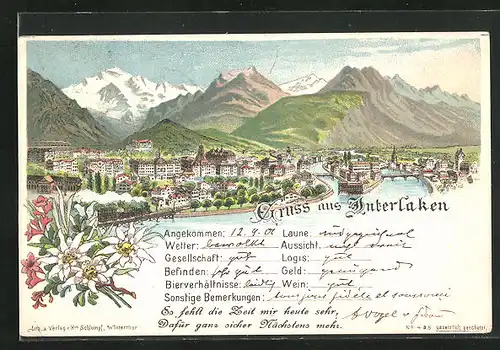 Gruss aus Interlaken
Angekommen: 12.9.01 Laune:
Wetter: bewölkt Aussicht:
Gesellschaft: gut Logis: gut
Befinden: sehr gut Geld: genügend
Bierverhältnisse: Wein: gut
Sonstige Bemerkungen: toujours fidèle et
Es fehlt die Zeit mir heute sehr,
Dafür ganz sicher Nächstens mehr.
Lith. u. Verlag v. Hch. Schlumpf, Winterthur
gesetzlich geschützt.